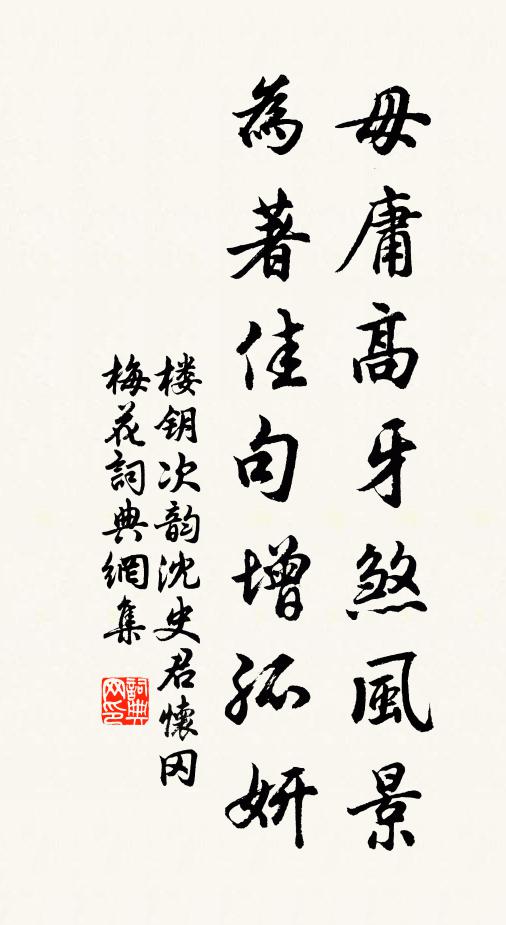 毋庸高牙煞風景
為著佳句增孤妍
楼钥次韵沈史君懷冈
梅花詞典網集
詞典
网印